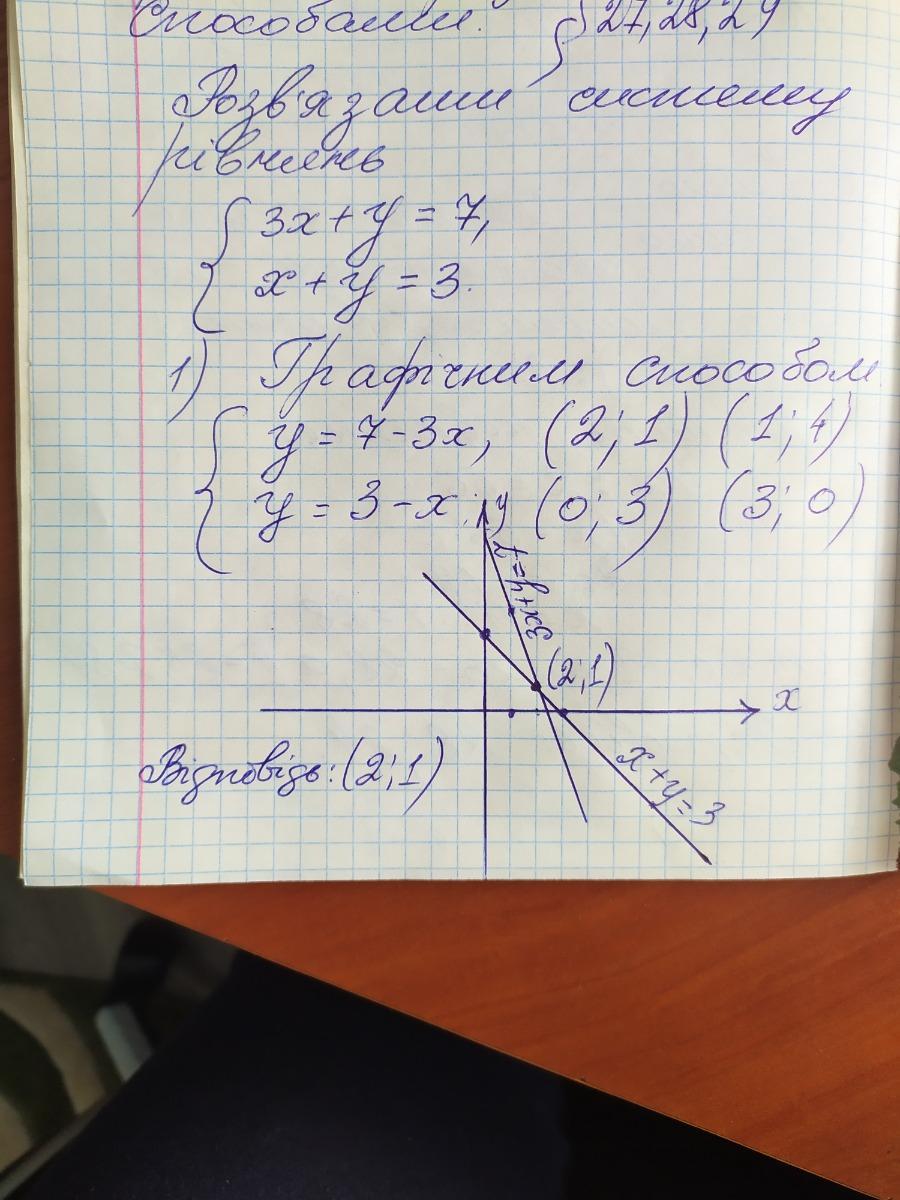 способами. § 27, 28, 29
Розв'язати систему
рівнянь
3x + y = 7,
x + y = 3.
1) Графічним способом
y = 7 - 3x, (2; 1) (1; 4)
y = 3 - x; (0; 3) (3; 0)
y
3x+y=7
(2;1)
x
x+y=3
Відповідь: (2; 1)